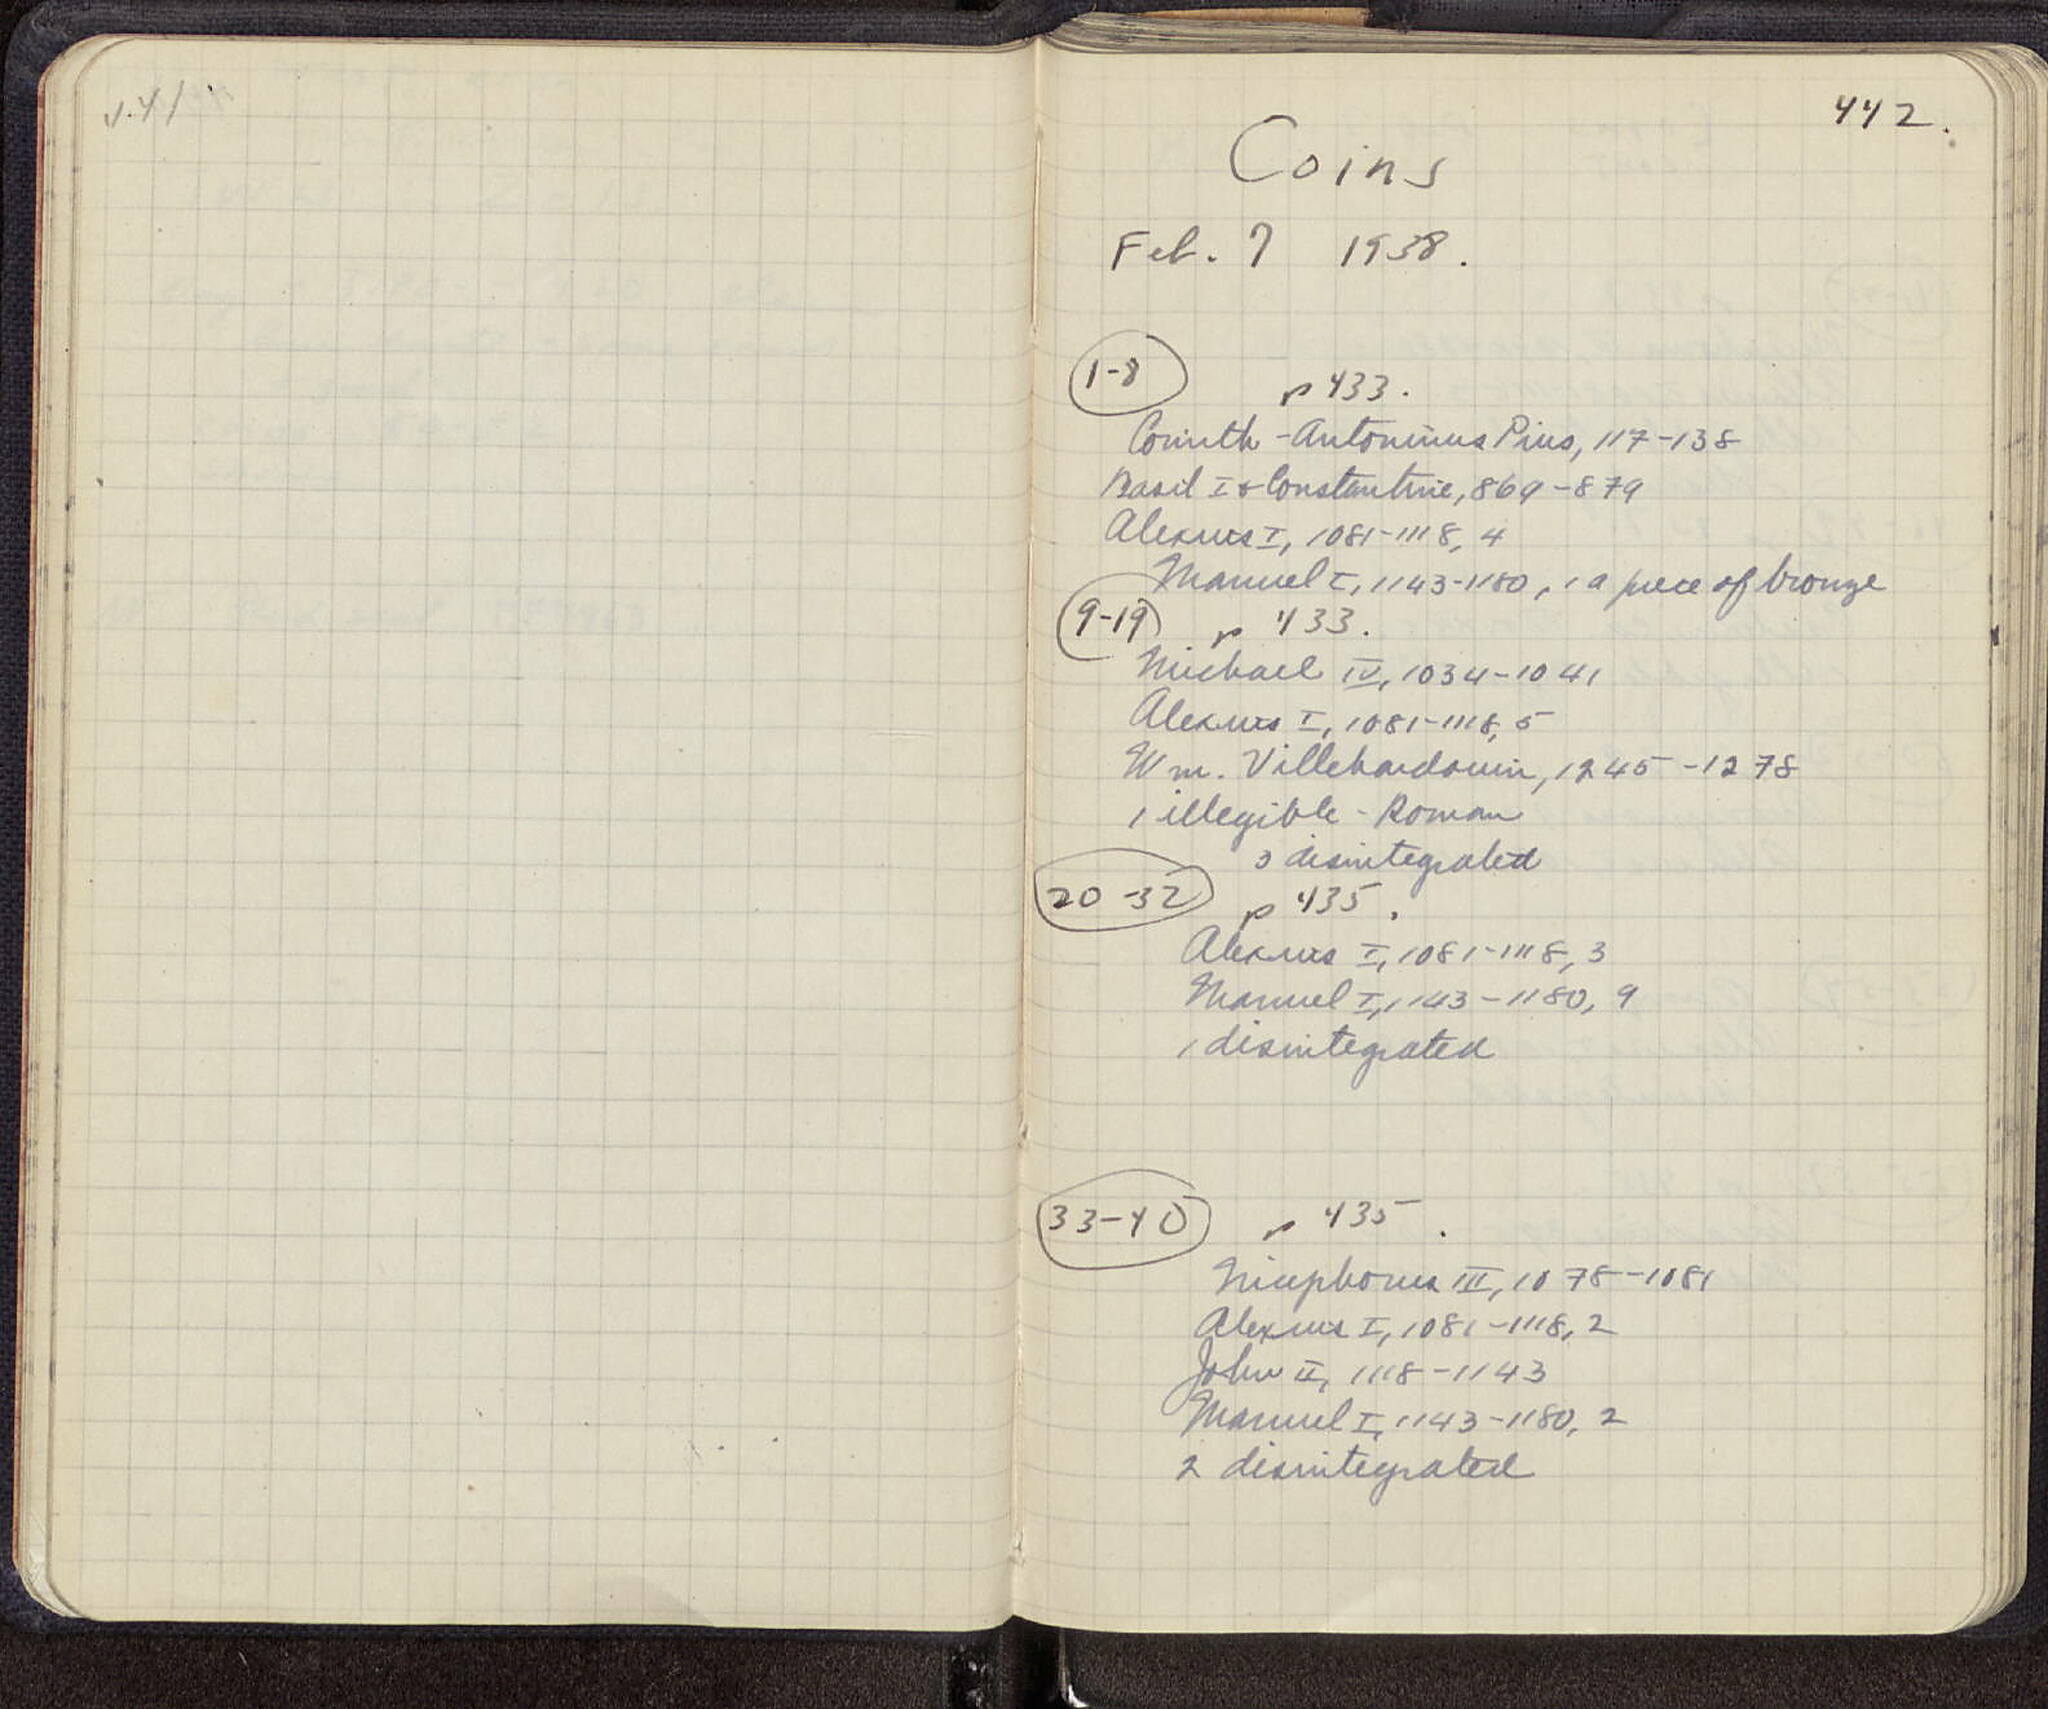 441
442.
Coins
Feb. 7 1938.
1-8 p 433.
Corinth - Antoninus Pius, 117-138
Basil I & Constantine, 869-879
Alexius I, 1081-1118, 4
Manuel I, 1143-1180, 1 a piece of bronze
9-19 p 433.
Michael IV, 1034-1041
Alexius I, 1081-1118, 5
Wm. Villehardouin, 1245-1278
1 illegible - Roman
3 disintegrated
20-32 p 435.
Alexius I, 1081-1118, 3
Manuel I, 1143-1180, 9
1 disintegrated
33-40 p 435.
Nicephorus III, 1078-1081
Alexius I, 1081-1118, 2
John II, 1118-1143
Manuel I, 1143-1180, 2
2 disintegrated